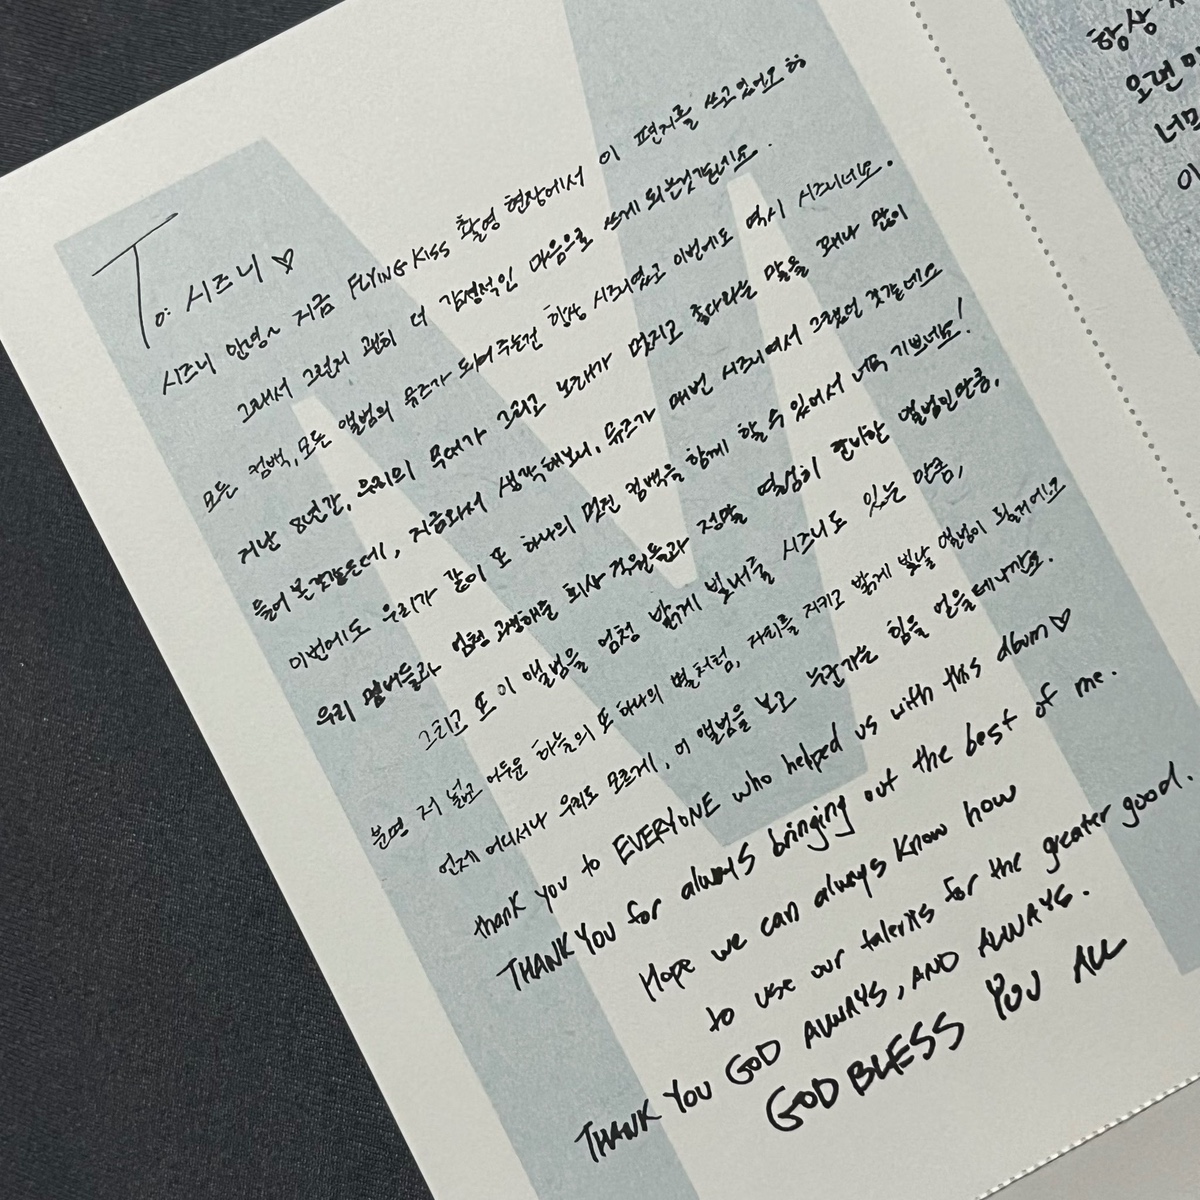 To: 시즈니 ♡
시즈니 안녕~ 지금 FLYING KISS 촬영 현장에서 이 편지를 쓰고 있어요 ㅎㅎ
그래서 그런지 괜히 더 감성적인 마음으로 쓰게 되는것같네요.
모든 컴백, 모든 앨범의 뮤즈가 되어 주는건 항상 시즈니였고 이번에도 역시 시즈니네요.
지난 8년간, 우리의 무대가 그리고 노래가 멋지고 좋다라는 말을 꽤나 많이
들어 본것같은데, 지금와서 생각해보니, 뮤즈가 매번 시즈니여서 그랬던 것같네요
이번에도 우리가 같이 또 하나의 멋진 컴백을 함께 할 수 있어서 너무 기쁘네요!
우리 멤버들과 엄청 고생해준 회사 직원들과 정말 열심히 준비한 앨범인만큼,
그리고 또 이 앨범을 엄청 밝게 빛내줄 시즈니도 있는 만큼,
분명 저 넓고 어두운 하늘의 또 하나의 별처럼, 자리를 지키고 밝게 빛날 앨범이 될거에요
언제 어디서나 우리도 모르게, 이 앨범을 보고 누군가는 힘을 얻을테니까요.
thank you to EVERYONE who helped us with this album ♡
THANK YOU for always bringing out the best of me.
Hope we can always know how
to use our talents for the greater good.
THANK YOU GOD ALWAYS, AND ALWAYS.
GOD BLESS YOU ALL
항상
오랜
너무
이